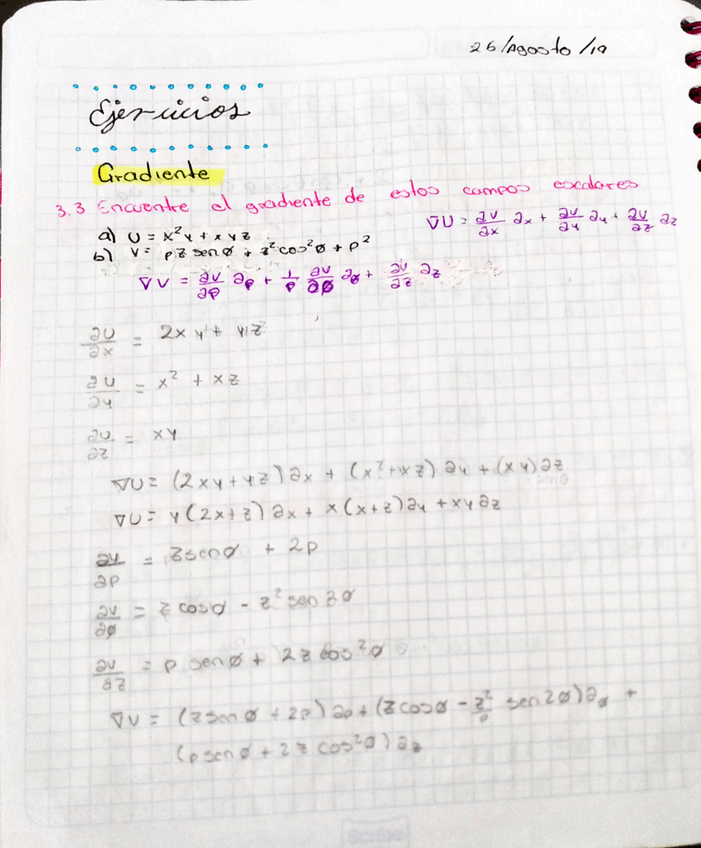 26/Agosto/19
Ejercicios
Gradiente
3.3 Encuentre el gradiente de estos campos escalares
a) U = x²y + xyz
∇U = ∂U/∂x ∂x + ∂U/∂y ∂y + ∂U/∂z ∂z
b) V = ρz senø + z²cos²ø + ρ²
∇V = ∂V/∂ρ ∂ρ + 1/ρ ∂V/∂ø ∂ø + ∂V/∂z ∂z
∂U/∂x = 2xy + yz
∂U/∂y = x² + xz
∂U/∂z = xy
∇U = (2xy + yz)∂x + (x² + xz)∂y + (xy)∂z
∇U = y(2x+z)∂x + x(x+z)∂y + xy∂z
∂V/∂ρ = zsenø + 2ρ
∂V/∂ø = z cosø - z² sen 2ø
∂V/∂z = ρ senø + 2z cos²ø
∇V = (zsenø + 2ρ)∂ρ + (zcosø - z²/ρ sen2ø)∂ø +
(ρsenø + 2z cos²ø)∂z
Scribe